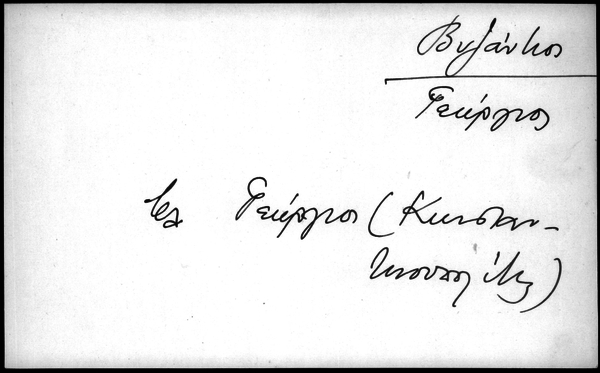 Βυζάντιος
Γεώργιος
βλ Γεώργιος (Κωνσταν-
τινουπολίτης)